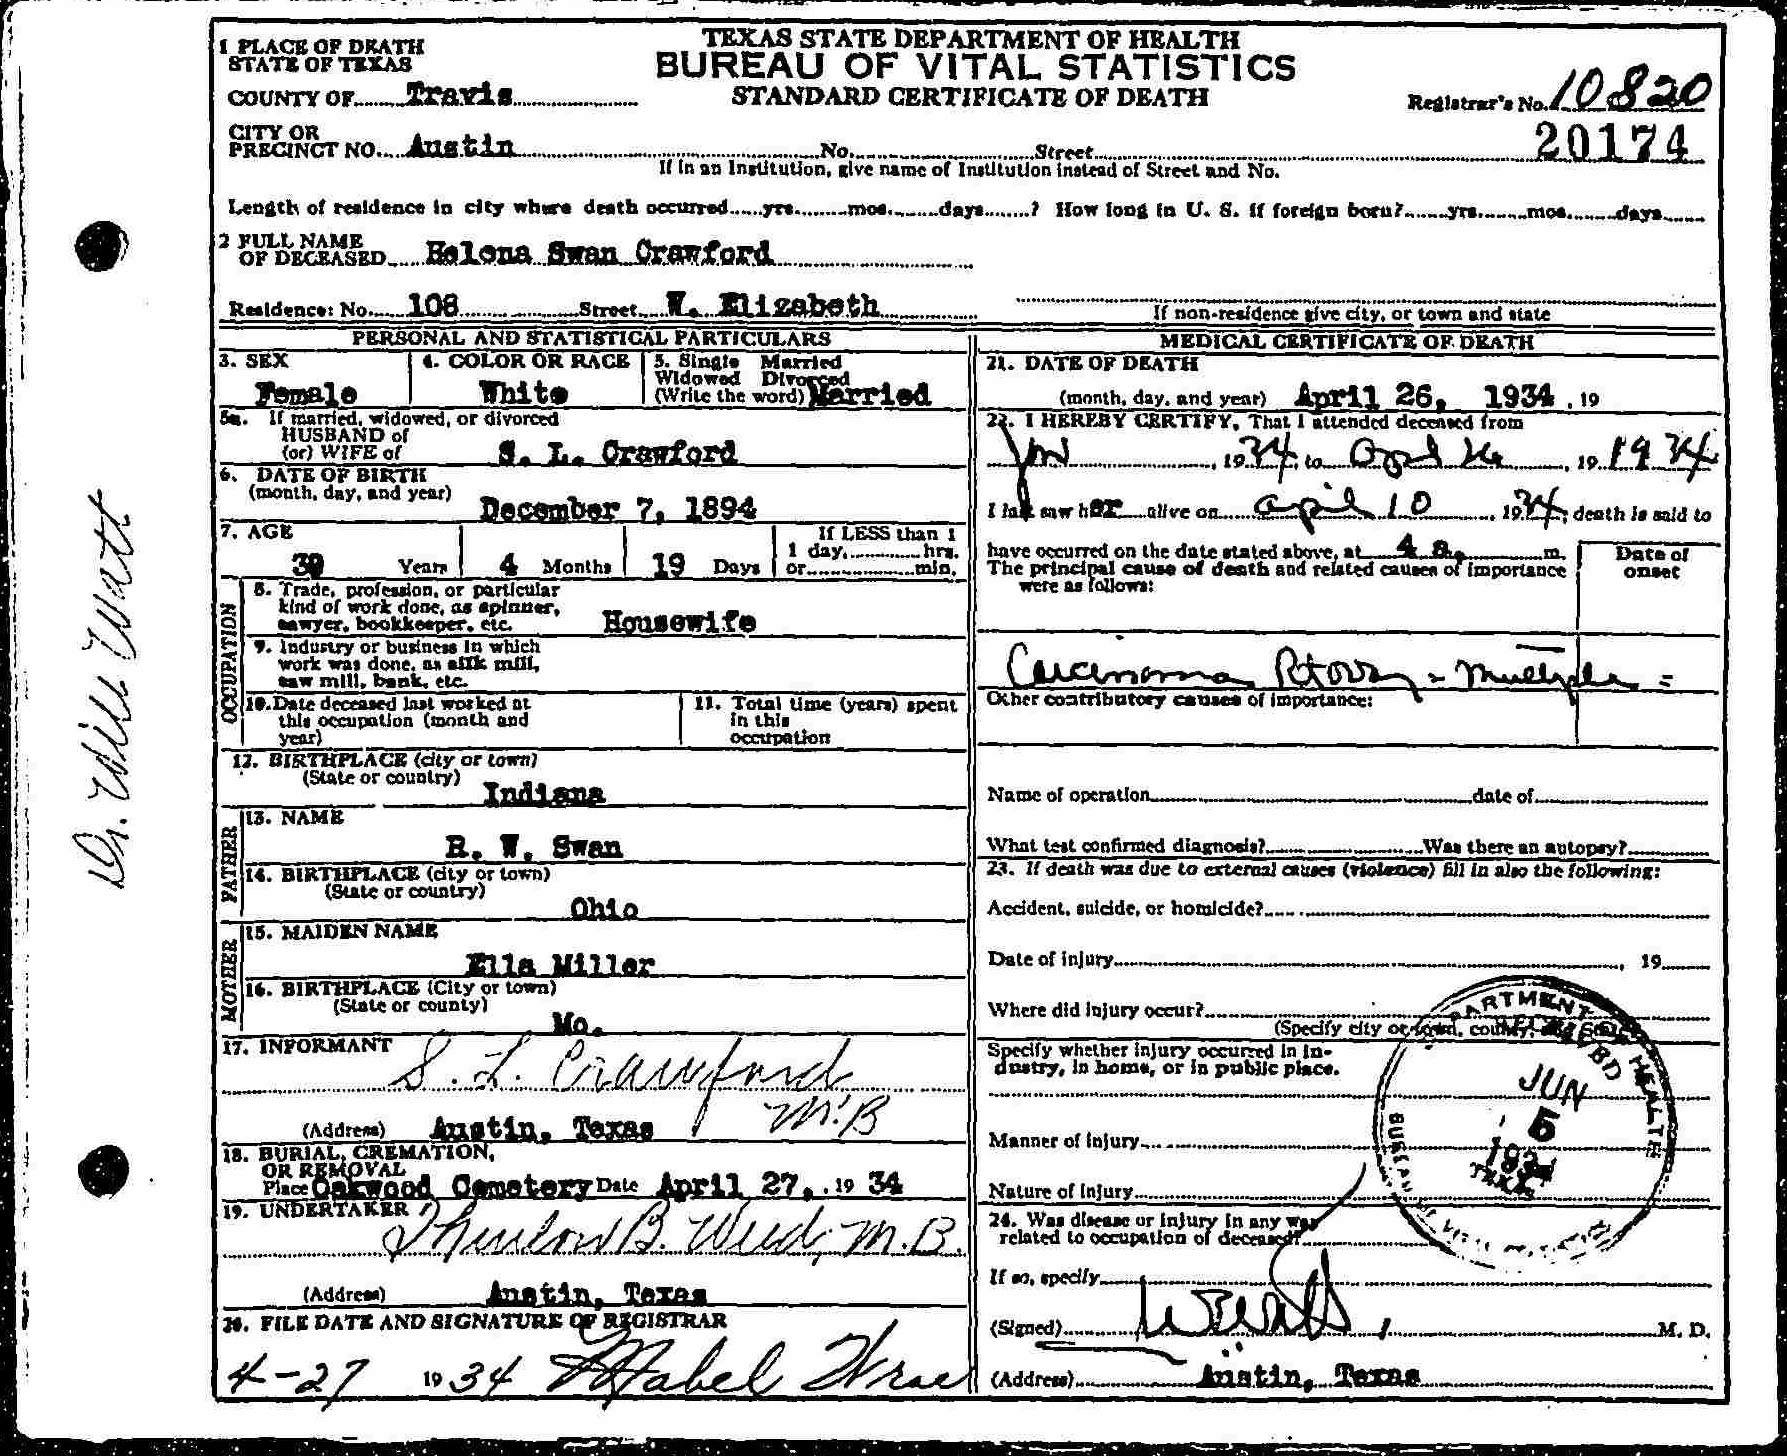 TEXAS STATE DEPARTMENT OF HEALTH
BUREAU OF VITAL STATISTICS
STANDARD CERTIFICATE OF DEATH
1 PLACE OF DEATH
STATE OF TEXAS
COUNTY OF Travis
Registrar's No. 10820
20174
CITY OR
PRECINCT NO. Austin No. Street
If in an Institution, give name of Institution instead of Street and No.
Length of residence in city where death occurred yrs. mos. days ? How long in U. S. if foreign born? yrs. mos. days
2 FULL NAME
OF DECEASED Helena Swan Crawford
Residence: No. 108 Street W. Elizabeth
If non-residence give city, or town and state
PERSONAL AND STATISTICAL PARTICULARS
3. SEX
Female
4. COLOR OR RACE
White
5. Single Married
Widowed Divorced
(Write the word) Married
5a. If married, widowed, or divorced
HUSBAND of
(or) WIFE of S. L. Crawford
6. DATE OF BIRTH
(month, day, and year)
December 7, 1894
7. AGE
39 Years 4 Months 19 Days
If LESS than 1
1 day, hrs.
or min.
OCCUPATION
8. Trade, profession, or particular
kind of work done, as spinner,
sawyer, bookkeeper, etc. Housewife
9. Industry or business in which
work was done, as silk mill,
saw mill, bank, etc.
10. Date deceased last worked at
this occupation (month and
year)
11. Total time (years) spent
in this
occupation
12. BIRTHPLACE (city or town)
(State or country)
Indiana
FATHER
13. NAME
R. W. Swan
14. BIRTHPLACE (city or town)
(State or country)
Ohio
MOTHER
15. MAIDEN NAME
Ella Miller
16. BIRTHPLACE (City or town)
(State or county)
Mo.
17. INFORMANT
S. L. Crawford
M.B
(Address) Austin, Texas
18. BURIAL, CREMATION,
OR REMOVAL
Place Oakwood Cemetery Date April 27, 19 34
19. UNDERTAKER
Thurlow B. Weed, M.B.
(Address) Austin, Texas
20. FILE DATE AND SIGNATURE OF REGISTRAR
4-27 19 34 Mabel
MEDICAL CERTIFICATE OF DEATH
21. DATE OF DEATH
(month, day, and year) April 26, 1934 , 19
22. I HEREBY CERTIFY, That I attended deceased from
Jan , 19 34, to April 26 , 19 1934
I last saw her alive on April 10 19 34, death is said to
have occurred on the date stated above, at 4 a. m.
The principal cause of death and related causes of importance
were as follows:
Date of
onset
Carcinoma - Multiple =
Other contributory causes of importance:
Name of operation date of
What test confirmed diagnosis? Was there an autopsy?
23. If death was due to external causes (violence) fill in also the following:
Accident, suicide, or homicide?
Date of injury , 19
Where did injury occur?
(Specify city or town, county, and State)
Specify whether injury occurred in in-
dustry, in home, or in public place.
Manner of injury
Nature of injury
24. Was disease or injury in any way
related to occupation of deceased?
If so, specify
(Signed) M. D.
(Address) Austin, Texas
DEPARTMENT OF HEALTH
RECEIVED
JUN
5
1934
TEXAS
BUREAU OF VITAL STATISTICS
Dr. Will Watt